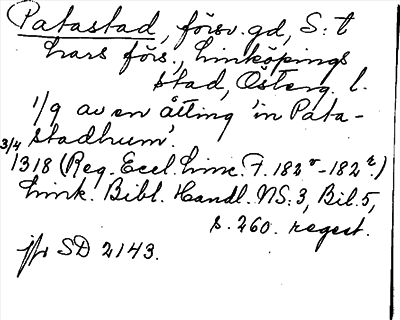 Patastad, försv. gd, S:t
Lars förs., Linköpings
stad, Österg. l.
1/9 av en åtting 'in Pata-
stadhum'.
3/4 1318 (Reg. Eccl. Linc. F. 182v-182r.)
Link. Bibl. Handl. NS:3, Bil. 5,
s. 260. regest.
jfr SD 2143.